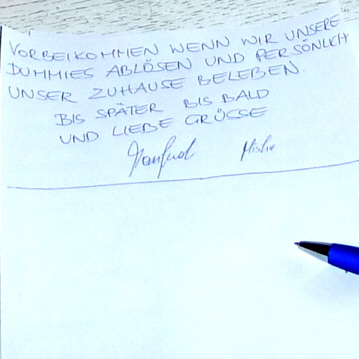 VORBEIKOMMEN WENN WIR UNSERE
DUMMIES ABLÖSEN UND PERSÖNLICH
UNSER ZUHAUSE BELEBEN.
BIS SPÄTER BIS BALD
UND LIEBE GRÜSSE
Manfred